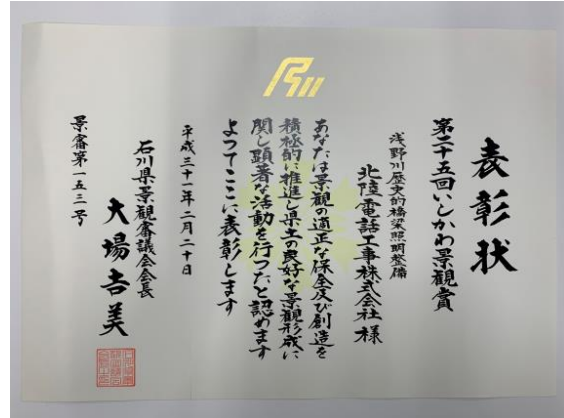 表彰状
第二十五回いしかわ景観賞
浅野川歴史的橋梁照明整備
北陸電話工事株式会社 様
あなたは景観の適正な保全及び創造を
積極的に推進し県土の良好な景観形成に
関し顕著な活動を行つたと認めます
よつてここに表彰します
平成三十一年二月二十日
石川県景観審議会会長
大場吉美
景審第一五三号